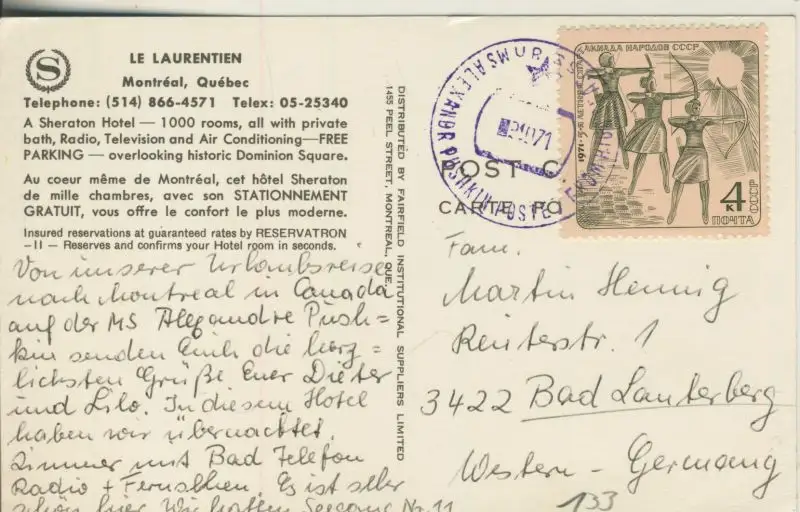 S
LE LAURENTIEN
Montréal, Québec
Telephone: (514) 866-4571 Telex: 05-25340
A Sheraton Hotel — 1000 rooms, all with private
bath, Radio, Television and Air Conditioning—FREE
PARKING — overlooking historic Dominion Square.
Au coeur même de Montréal, cet hôtel Sheraton
de mille chambres, avec son STATIONNEMENT
GRATUIT, vous offre le confort le plus moderne.
Insured reservations at guaranteed rates by RESERVATRON
-II- — Reserves and confirms your Hotel room in seconds.
Von unserer Urlaubsreise
nach Montreal in Canada
auf der MS Alexandre Push=
kin senden Euch die herz=
lichsten Grüße Euer Dieter
und Lilo. In diesem Hotel
haben wir übernachtet.
Zimmer mit Bad Telefon
Radio + Fernsehen. Es ist sehr
schön hier. Wir hatten Seegang Nr. 11
DISTRIBUTED BY FAIRFIELD INSTITUTIONAL SUPPLIERS LIMITED
1455 PEEL STREET, MONTREAL, QUE.
POST C
CARTE PO
MS ALEXANDR PUSHKIN POSTE
71
СПАРТАКИАДА НАРОДОВ СССР
1971
4 к
ПОЧТА
СССР
Fam.
Martin Hennig
Reuterstr. 1
3422 Bad Lauterberg
Western - Germany
133